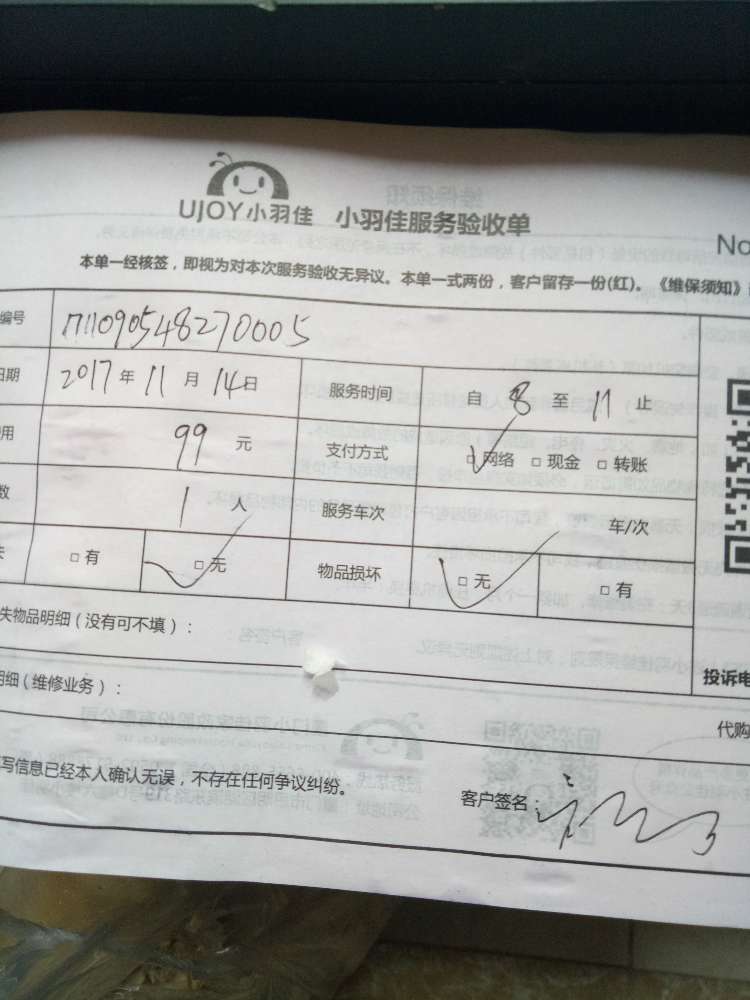 UJOY小羽佳 小羽佳服务验收单
No
本单一经核签，即视为对本次服务验收无异议。本单一式两份，客户留存一份(红)。《维保须知》
编号 1711090548270005
日期 2017年11月14日 服务时间 自8至11止
用 99元 支付方式 □网络 □现金 □转账
数 1人 服务车次 车/次
失 □有 □无 物品损坏 □无 □有
失物品明细（没有可不填）：
明细（维修业务）：
投诉电
代购
写信息已经本人确认无误，不存在任何争议纠纷。
客户签名：